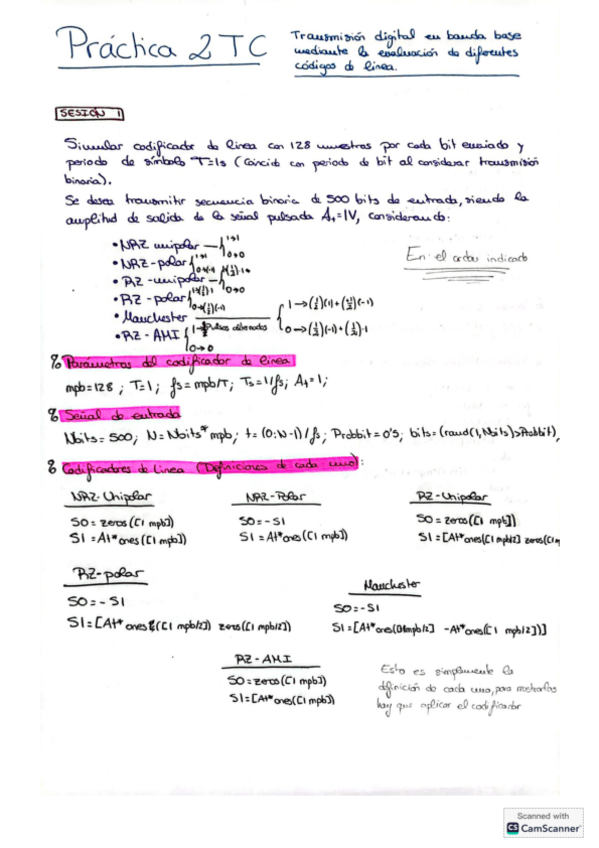 Práctica 2 TC
Transmisión digital en banda base
mediante la evaluación de diferentes
códigos de línea.
SESIÓN 1
Simular codificador de línea con 128 muestras por cada bit enviado y
periodo de símbolo T=1s (Coincide con periodo de bit al considerar transmisión
binaria).
Se desea transmitir secuencia binaria de 500 bits de entrada, siendo la
amplitud de salida de la señal pulsada A+=1V, considerando:
• NRZ unipolar 1→1 0→0
• NRZ-polar 1→1
• RZ-unipolar 0→0
• RZ-polar
• Manchester 1→(½)(1)+(½)(-1)
• RZ-AMI 1→ Pulsos alternados 0→(½)(-1)+(½)·1
0→0
En el orden indicado
% Parámetros del codificador de línea
mpb=128; T=1; fs=mpb/T; Ts=1/fs; A+=1;
% Señal de entrada
Nbits=500; N=Nbits*mpb; t=(0:N-1)/fs; Probbit=0'5; bits=(rand(1,Nbits)>Probbit),
% Codificadores de Línea (Definiciones de cada uno):
NRZ-Unipolar NRZ-Polar RZ-Unipolar
S0=zeros([1 mpb]) S0=-S1 S0=zeros([1 mpb])
S1=A+*ones([1 mpb]) S1=A+*ones([1 mpb]) S1=[A+*ones([1 mpb/2] zeros([1
RZ-polar Manchester
S0=-S1 S0=-S1
S1=[A+*ones([1 mpb/2]) zeros([1 mpb/2])] S1=[A+*ones( mpb/2] -A+*ones([1 mpb/2])]
RZ-AMI
S0=zeros([1 mpb])
S1=[A+*ones([1 mpb])
Esto es simplemente la
definición de cada uno, para mostrarlos
hay que aplicar el codificador
Scanned with
CS CamScanner